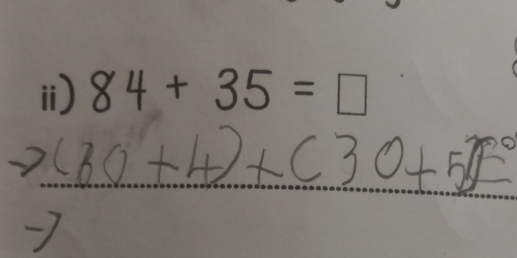 ii) 84 + 35 = □
→ (80 + 4) + (30 + 5) =
→